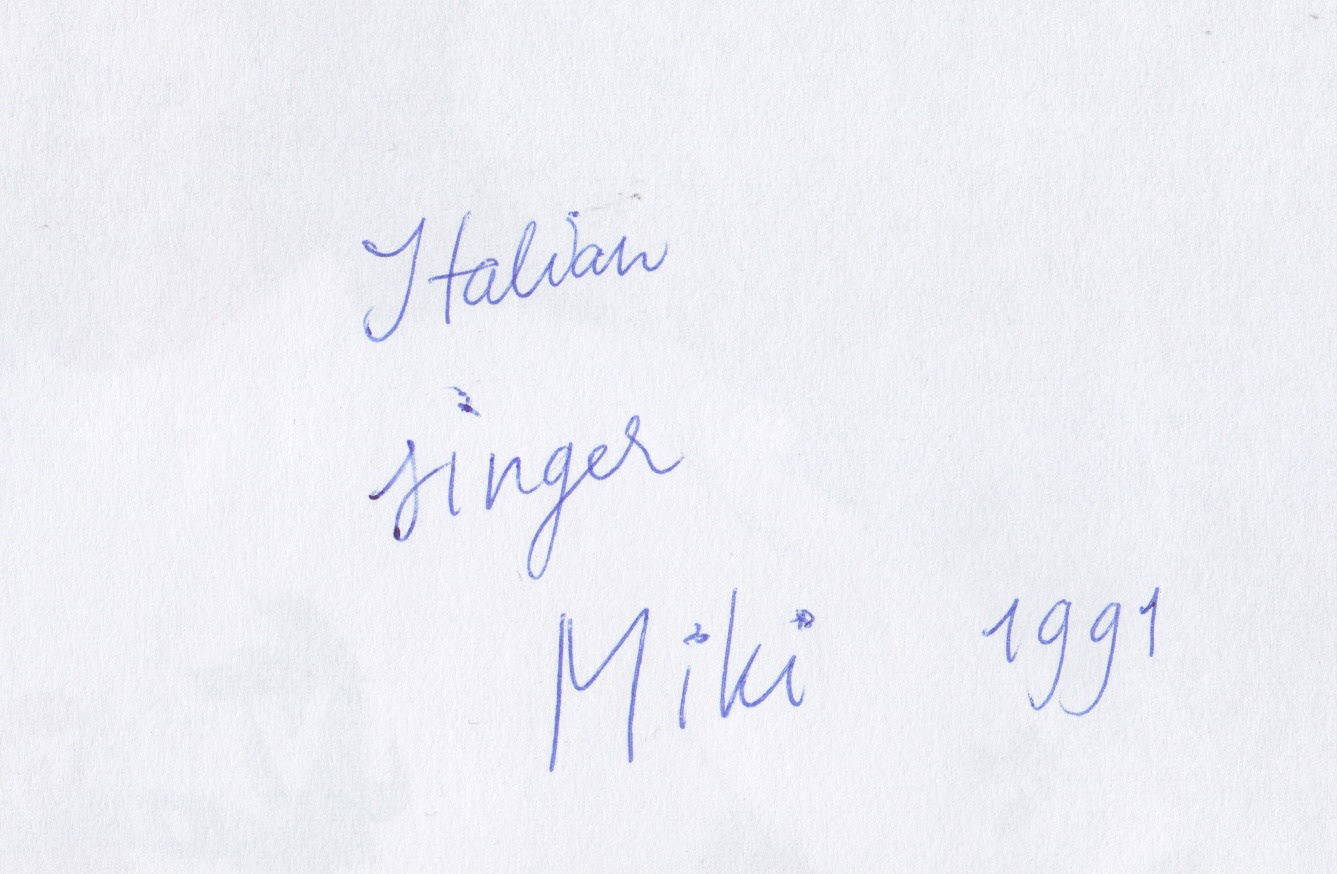 Italian
singer
Miki 1991